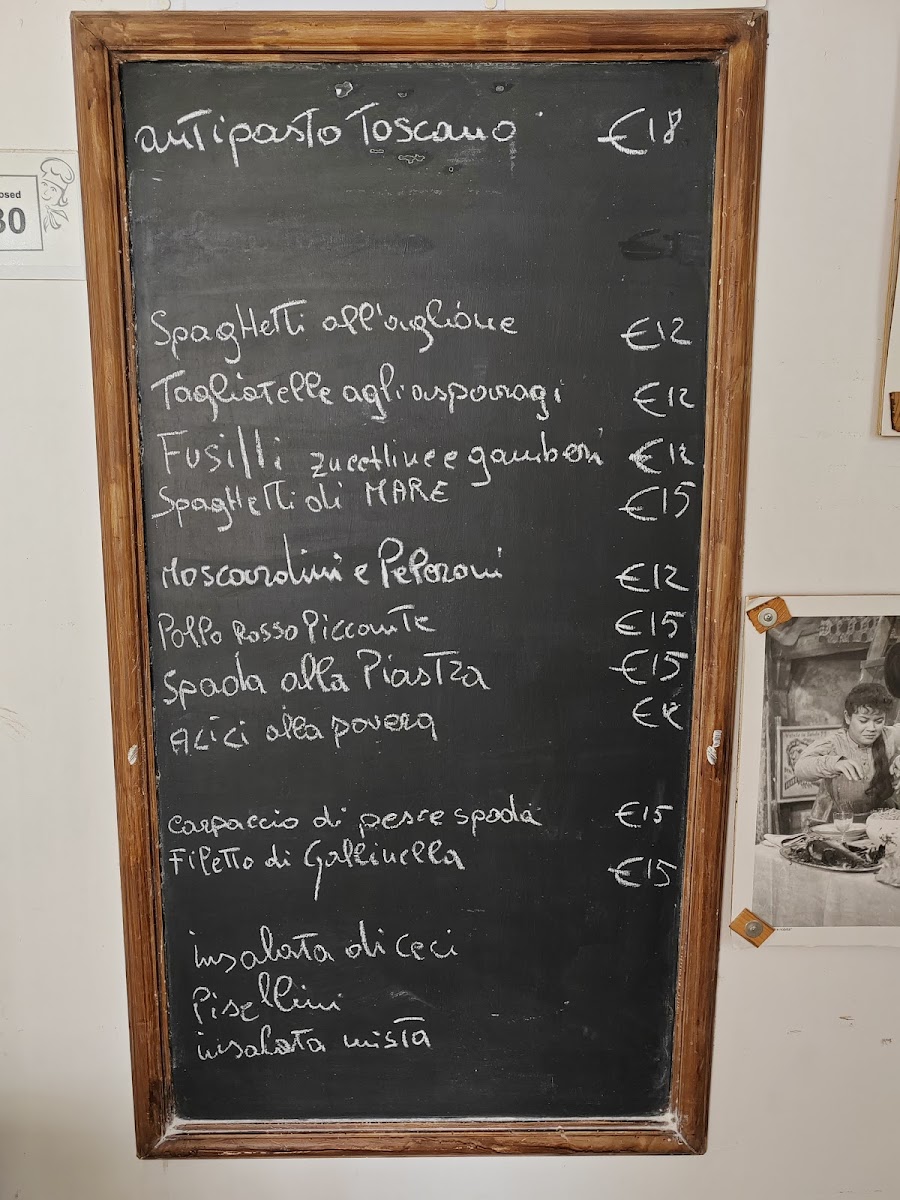 antipasto Toscano €18
osed
30
Spaghetti all'aglione €12
Tagliatelle agli asparagi €12
Fusilli zucchine e gamberi €12
Spaghetti di MARE €15
Moscardini e Peperoni €12
Pollo Rosso Piccante €15
Spada alla Piastra €15
Alici alla povera
carpaccio di pesce spada €15
Filetto di Gallinella €15
insalata di ceci
Pisellini
insalata mista